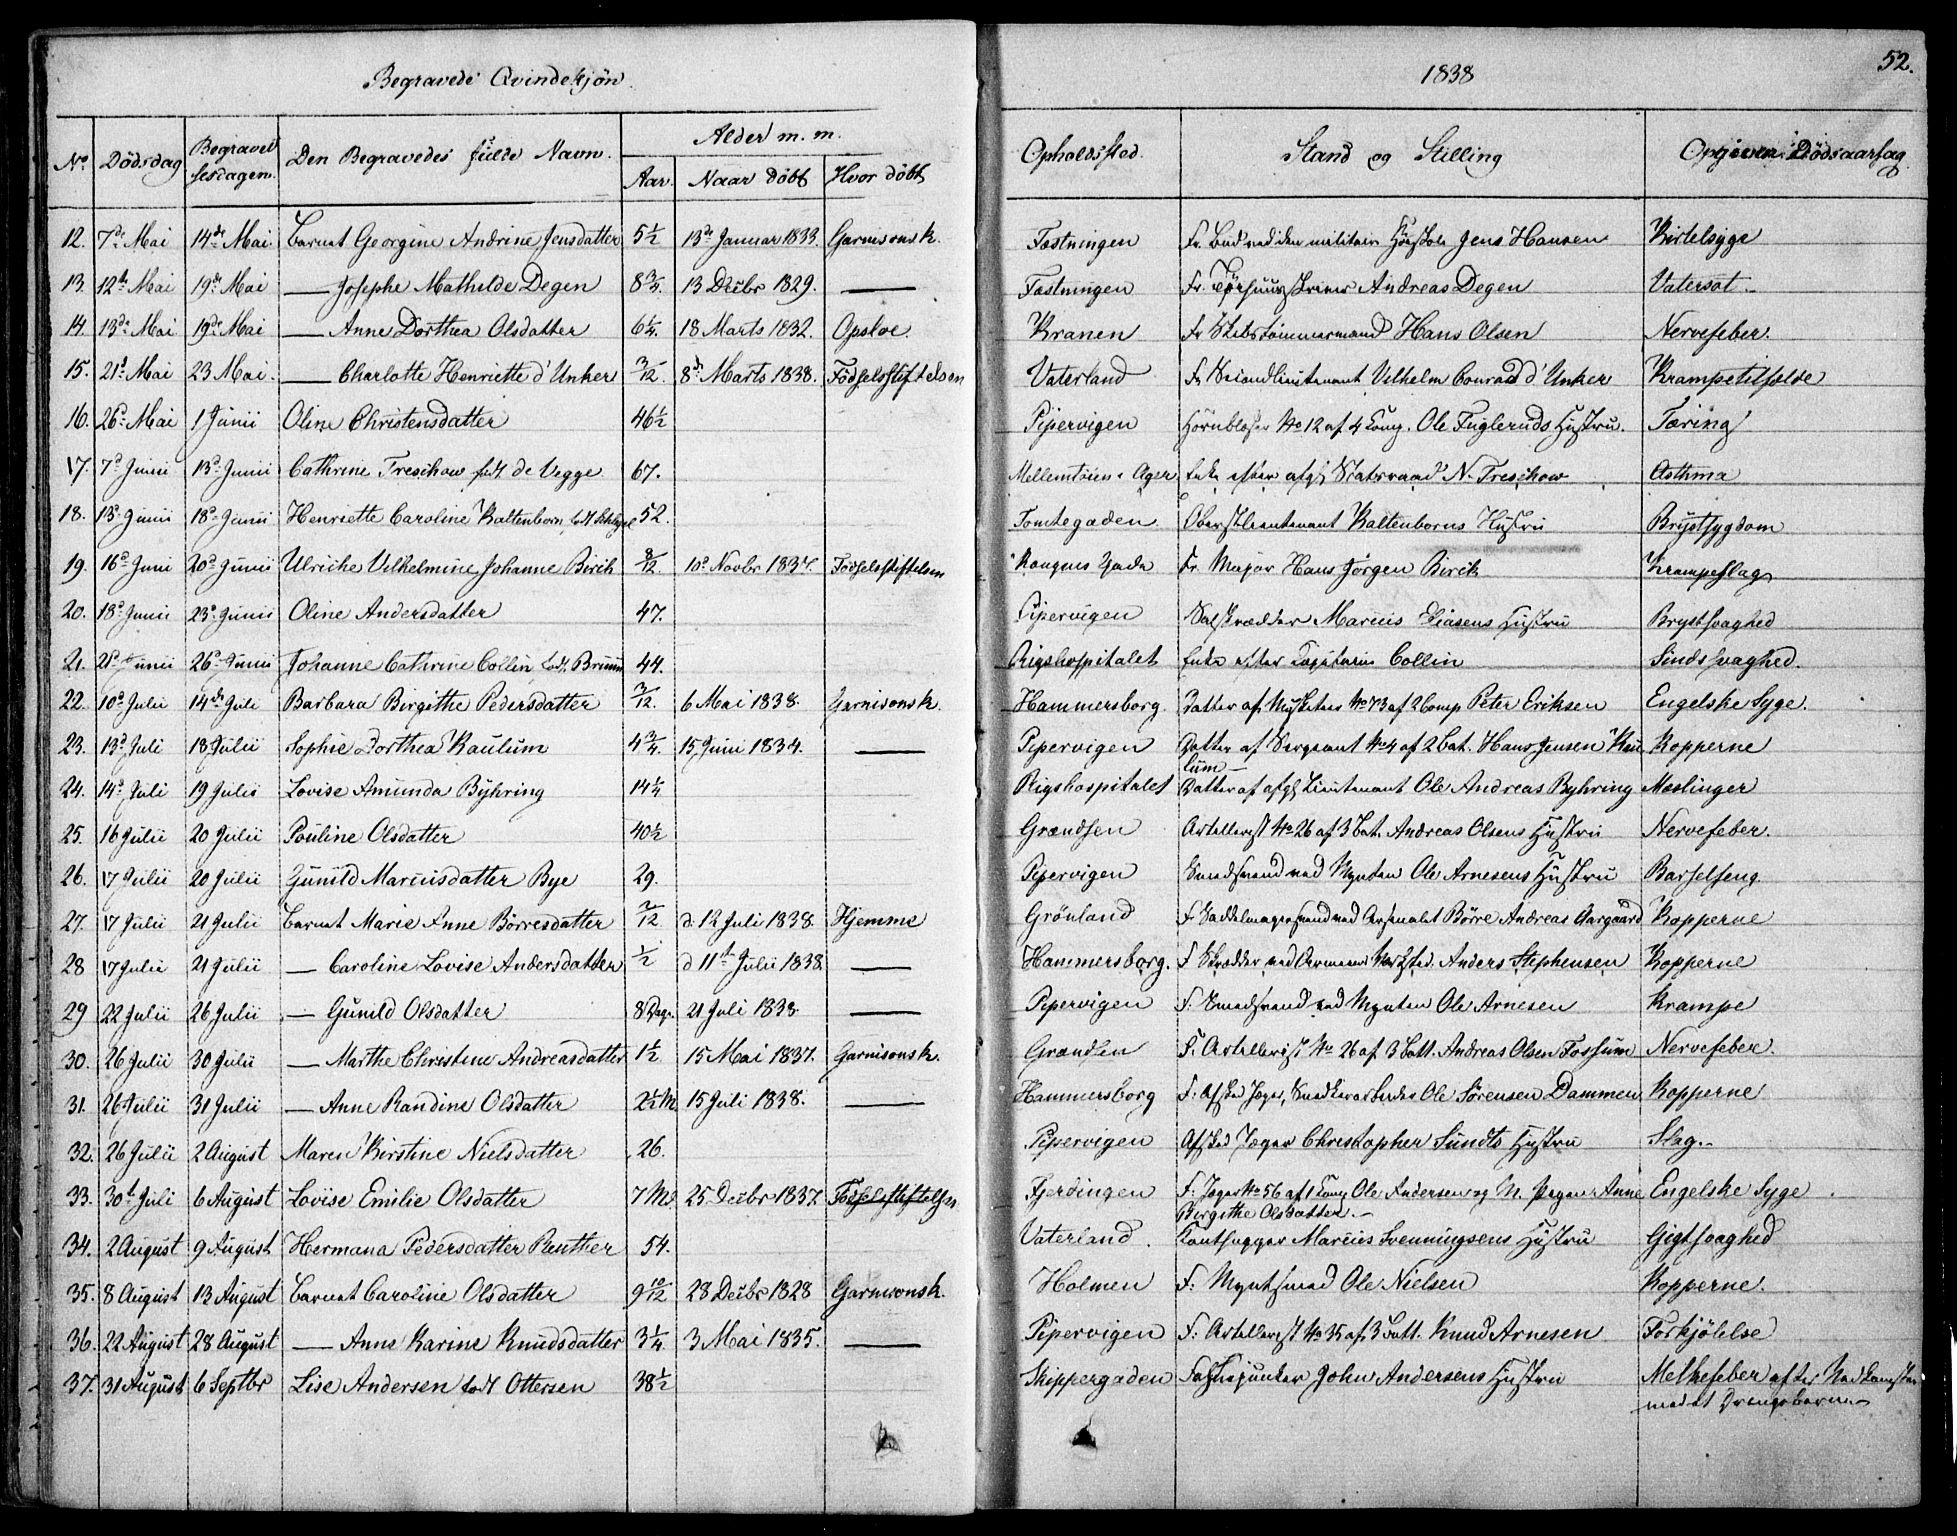 Begravede Qvindekjøn.
1838
52.
No. Dödsdag Begravelsesdagen. Den Begravedes fulde Navn. Alder m. m. Aar. Naar döbt Hvor döbt Opholdssted. Stand og Stilling Opgiven Dödsaarsag
12. 7de Mai 14de Mai. Barnet Georgine Andrine Jensdatter 5½ 13de Januar 1833. Garnisonsk. Fæstningen Fr. Bud ved den militair Jens Hansen Kirtelsyge
13. 12te Mai 19de Mai — Josephe Mathilde Degen 8¾. 13 Decbr 1829. — Fæstningen Fr. Andreas Degen Vatersot.
14. 13de Mai 19de Mai — Anne Dorthea Olsdatter 6¼. 18 Marts 1832. Opsloe. Kranen Fr. Skibstömmermand Hans Olsen Nervefeber.
15. 21d Mai 23 Mai. — Charlotte Henriette d'Unker 3/12. 8d Marts 1838. Födselsstiftelsen Vaterland Fr. Secondlieutenant Vilhelm Conrad d'Unker Krampetilfælde
16. 26d Mai 1 Junii Oline Christensdatter 46½ Pipervigen Hornblæser No 12 af 4 Comp. Ole Fugleruds Hustru. Tæring
17. 7d Junii 13d Junii Cathrine Treschow født de Vegge 67. Mellemtöien i Ager Enke efter afg. Statsraad N. Treschow Asthma
18. 13d Junii 18d Junii Henriette Caroline Kaltenborn født Schlegel 52. Tomtegaden Oberstlieutenant Kaltenborns Hustru Brystsygdom
19. 16d Juni 20d Junii Ulriche Vilhelmine Johanne Birch 8/12. 10d Novbr 1837. Födselsstiftelsen Kongens Gade Fr. Major Hans Jørgen Birch Krampeslag
20. 18d Junii 23d Junii Oline Andersdatter 47. Pipervigen Marcus Eliasens Hustru Brystsvaghed
21. 21d Junii 26d Junii Johanne Cathrine Collin født Bruun 44. Rigshospitalet Enke efter Capitain Collin Sindssvaghed.
22. 10d Julii 14de Juli Barbara Birgithe Pedersdatter 3/12. 6 Mai 1838. Garnisonsk. Hammersborg. Datter af Musketeer No 73 af 2 Comp Peter Eriksen Engelske Syge.
23. 13d Juli 18 Julii Sophie Dorthea Kaulum 4¾. 15 Juni 1834. — Pipervigen Datter af Sergeant No 4 af 2 Bat. Hans Jensen Kau-
lum — Kopperne
24. 14d Juli 19 Julii Lovise Amunda Byhring 14¼ Rigshospitalet Datter af afg. Lieutenant Ole Andreas Byhring Meslinger
25. 16 Julii 20 Julii Pouline Olsdatter 40½ Grændsen Artellerist No 26 af 3 Bat. Andreas Olsens Hustru Nervefeber.
26. 17 Julii 20 Julii Gunild Marcusdatter Bye 29. Pipervigen Smedsvend ved Mynten Ole Arnesens Hustru Barselseng
27. 17 Julii 21 Julii Barnet Marie Anne Börresdatter 2/12 d. 12 Juli 1838. Hjemme Grönland F. Sadelmagersvend ved Arsenalet Börre Andreas Aargaard Kopperne
28 17 Julii 21 Julii — Caroline Lovise Andersdatter ½ d 11te Julii 1838. — Hammersborg. F. Skrædder ved Anders Stephensen Kopperne
29 22 Julii 26 Julii — Gunild Olsdatter 8 Dage. 21 Juli 1838. — Pipervigen F. Smedsvend ved Mynten Ole Arnesen Krampe
30. 26 Julii 30 Julii — Marthe Christine Andreasdatter 1½ 15 Mai 1837. Garnisonsk. Grændsen F. Artellerist No 26 af 3 Batt. Andreas Olsen Fossum Nervefeber.
31. 26 Julii 31 Julii — Anne Randine Olsdatter 2½ M. 15 Juli 1838. — Hammersborg F: Afsked Jæger, Snedkerarbeider Ole Sörensen Dammen Kopperne
32. 26 Julii 2 August Maren Kirstine Nielsdatter 26. Pipervigen Afsked Jæger Christopher Sundts Hustru Slag.
33. 30t Juli 6 August Lovise Emilie Olsdatter 7 Md. 25 Decbr 1837. Födselsstiftelsen Fjerdingen F: Jæger No 56 af 1 Comp Ole Andersen og M. Pigen Anne
Birgithe Olsdatter. Engelske Syge
34. 2 August 9 August Hermana Pedersdatter Reuther 54. Vaterland. Marcus Svenningsens Hustru Gigtsvaghed
35. 8 August 13 August Barnet Caroline Olsdatter 9 10/12 28 Decbr 1828 Garnisonsk. Holmen F: Myntsmed Ole Nielsen Kopperne.
36. 22 August 28 August — Anne Karine Knudsdatter 3¼ 3 Mai 1835. — Pipervigen F: Artellerist No 35 af 3 Batt. Knud Arnesen Forkjölelse
37. 31 August 6 Septbr Lise Andersen født Ottersen 38½ Skippergaden Fahnejunker John Andersens Hustru Melkefeber efter Nedkomsten
med et Drengebarn